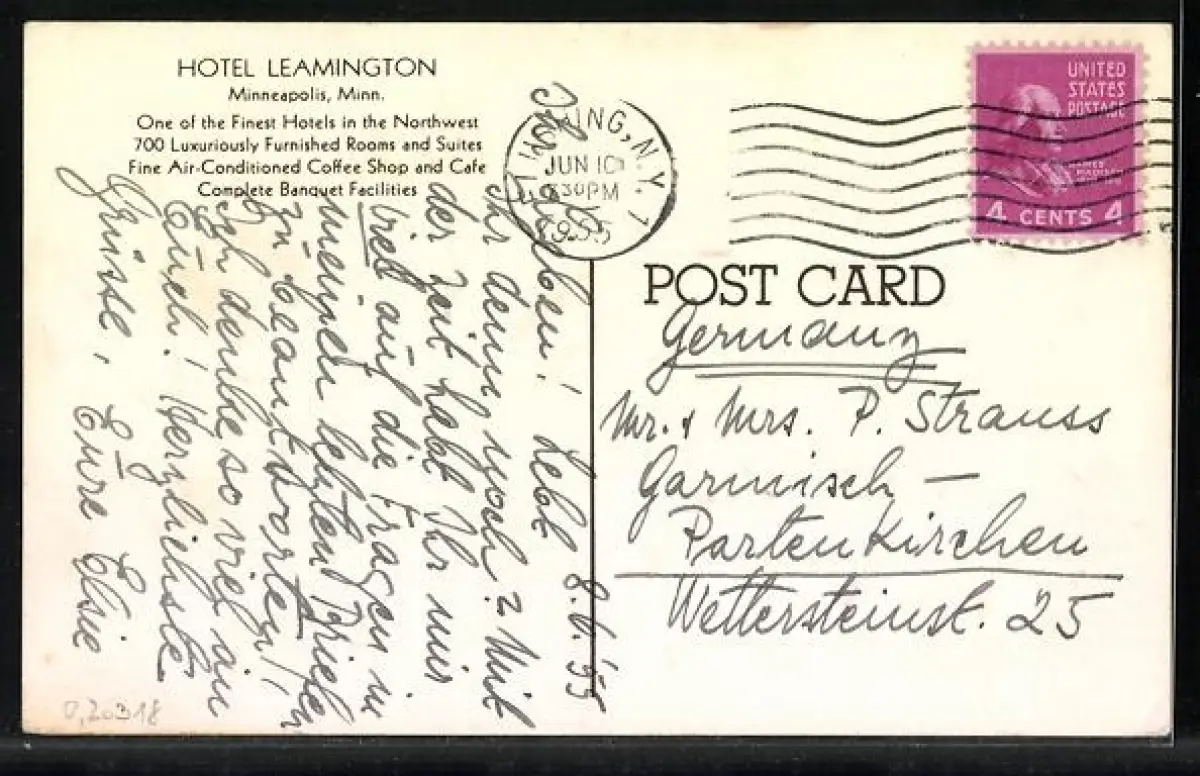 HOTEL LEAMINGTON
Minneapolis, Minn.
One of the Finest Hotels in the Northwest
700 Luxuriously Furnished Rooms and Suites
Fine Air-Conditioned Coffee Shop and Cafe
Complete Banquet Facilities
8.6.'55
Ihr Lieben! Lebt
Ihr denn noch? Mit
der Zeit habt Ihr mir
viel auf die Fragen in
meinen letzten Briefen
zu beantworten!
Ich denke so viel an
Euch! Herzlichste
Grüsse, Eure Elsie
N.Y. 1
JUN 10
30 PM
1955
UNITED
STATES
POSTAGE
JAMES
MADISON
4 CENTS 4
POST CARD
Germany
Mr. & Mrs. P. Strauss
Garmisch –
Partenkirchen
Wettersteinst. 25